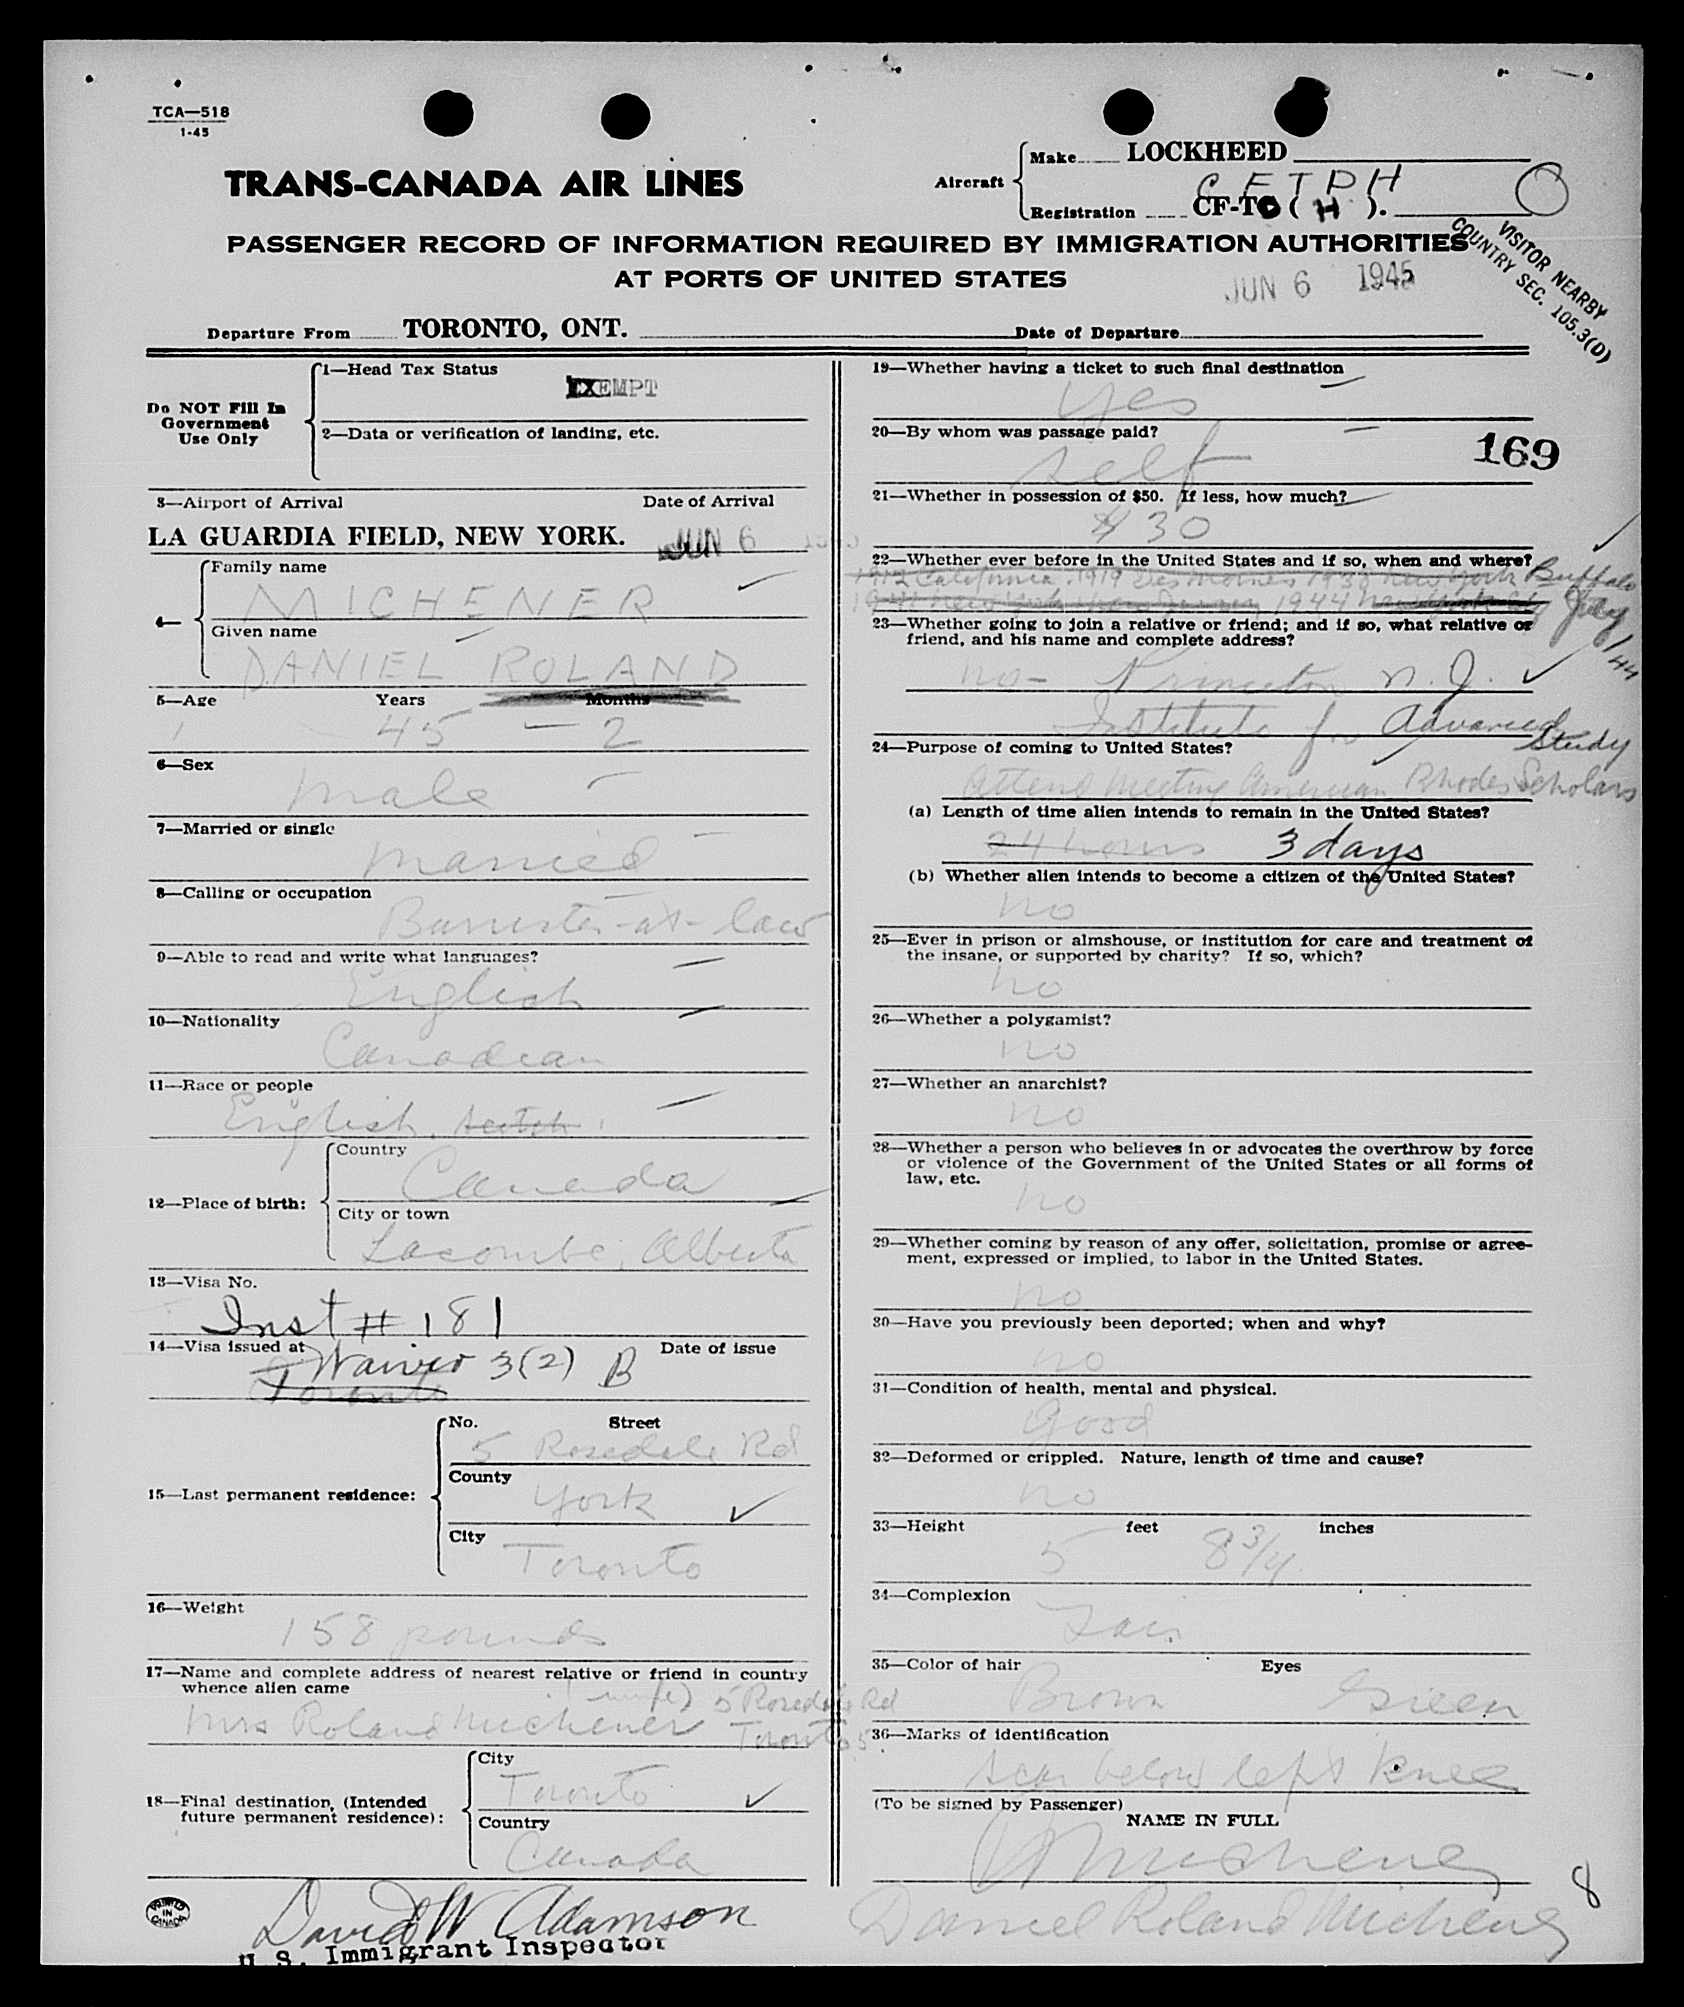 TCA—518
1-45
TRANS-CANADA AIR LINES
Aircraft
Make LOCKHEED
C F T D H
Registration CF-TC ( H ).
PASSENGER RECORD OF INFORMATION REQUIRED BY IMMIGRATION AUTHORITIES
AT PORTS OF UNITED STATES
VISITOR NEARBY
COUNTRY SEC. 105.3(D)
JUN 6 1945
Departure From TORONTO, ONT. Date of Departure
Do NOT Fill In
Government
Use Only
1—Head Tax Status
EXEMPT
2—Data or verification of landing, etc.
3—Airport of Arrival Date of Arrival
LA GUARDIA FIELD, NEW YORK. JUN 6
4—
Family name
MICHENER
Given name
DANIEL ROLAND
5—Age Years Months
45 — 2
6—Sex
Male
7—Married or single
Married
8—Calling or occupation
Barrister-at-law
9—Able to read and write what languages?
English
10—Nationality
Canadian
11—Race or people
English, Scotch
12—Place of birth:
Country
Canada
City or town
Lacombe, Alberta
13—Visa No.
Inst # 181
14—Visa issued at Date of issue
Waiver 3(2) B
Toronto
15—Last permanent residence:
No. Street
5 Rosedale Rd
County
York
City
Toronto
16—Weight
158 pounds
17—Name and complete address of nearest relative or friend in country
whence alien came
(wife) 5 Rosedale Rd
Mrs Roland Michener Toronto 5
18—Final destination, (Intended
future permanent residence):
City
Toronto
Country
Canada
David W Adamson
U. S. Immigrant Inspector
PRINTED
IN
CANADA
19—Whether having a ticket to such final destination
Yes
20—By whom was passage paid?
169
self
21—Whether in possession of $50. If less, how much?
$30
22—Whether ever before in the United States and if so, when and where?
1912 California, 1919 Des Moines 1939 New York Buffalo
1941 New York 1944 New York July
1/44
23—Whether going to join a relative or friend; and if so, what relative or
friend, and his name and complete address?
no — Princeton N. J.
Institute for Advanced Study
24—Purpose of coming to United States?
Attend Meeting American Rhodes Scholars
(a) Length of time alien intends to remain in the United States?
24 hours 3 days
(b) Whether alien intends to become a citizen of the United States?
no
25—Ever in prison or almshouse, or institution for care and treatment of
the insane, or supported by charity? If so, which?
no
26—Whether a polygamist?
no
27—Whether an anarchist?
no
28—Whether a person who believes in or advocates the overthrow by force
or violence of the Government of the United States or all forms of
law, etc.
no
29—Whether coming by reason of any offer, solicitation, promise or agree-
ment, expressed or implied, to labor in the United States.
no
30—Have you previously been deported; when and why?
no
31—Condition of health, mental and physical.
Good
32—Deformed or crippled. Nature, length of time and cause?
no
33—Height feet inches
5 8 3/4
34—Complexion
Fair
35—Color of hair Eyes
Brown Green
36—Marks of identification
scar below left knee
(To be signed by Passenger)
NAME IN FULL
Michener
Daniel Roland Michener
8